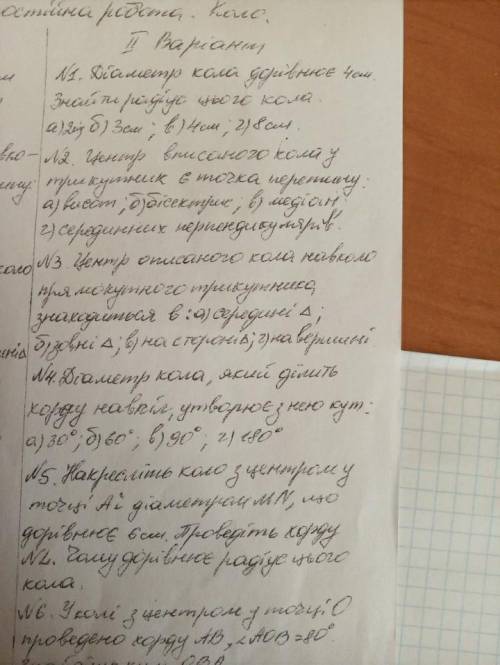 остійна робота. Коло.
II Варіант
N1. Діаметр кола дорівнює 4см.
Знайти радіус цього кола.
а) 2 б) 3см; в) 4см; г) 8см.
N2. Центр вписаного кола у
трикутник є точка перетину:
а) висот; б) бісектрис; в) медіан;
г) серединних перпендикулярів.
N3. Центр описаного кола навколо
прямокутного трикутника
знаходиться в: а) середині △;
б) зовні △; в) на стороні △; г) на вершині
N4. Діаметр кола, який ділить
хорду навпіл, утворює з нею кут:
а) 30°; б) 60°; в) 90°; г) 180°
N5. Накресліть коло з центром у
точці А й діаметром MN, що
дорівнює 6см. Проведіть хорду
NL. Чому дорівнює радіус цього
кола.
N6. У колі з центром у точці О
проведено хорду АВ, ∠AOB=80°.
OBA